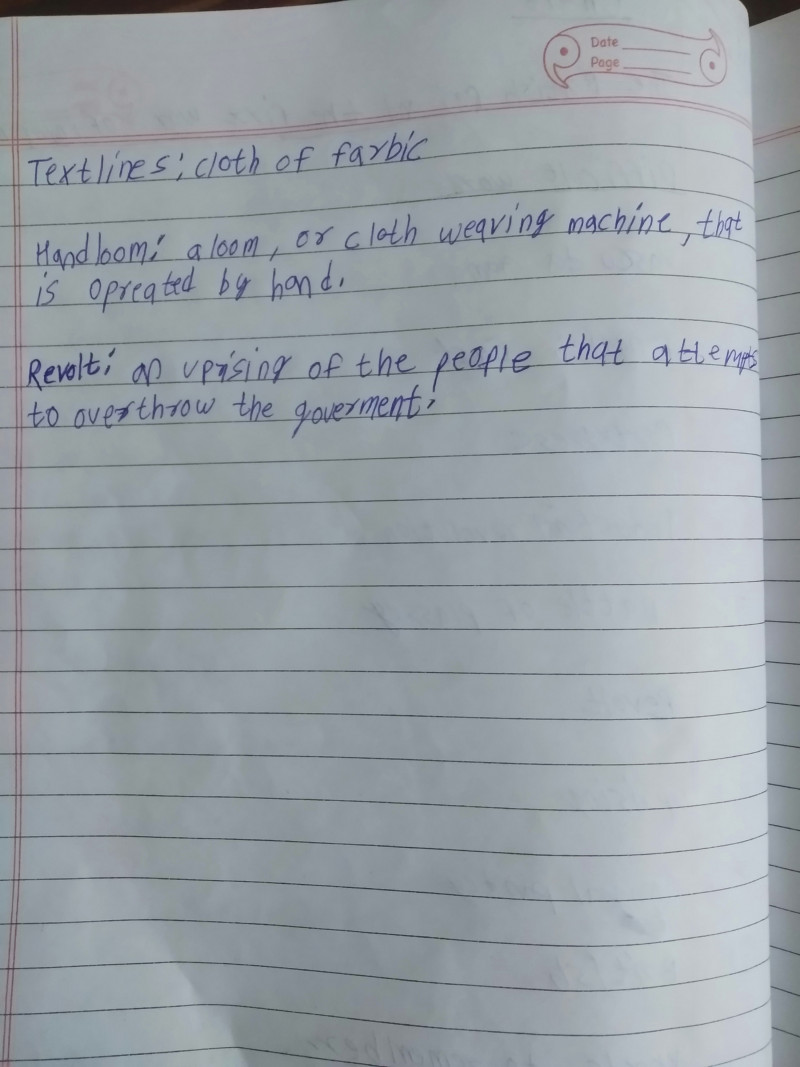 Date
Page
Textlines; cloth of farbic
Handloom; a loom, or cloth weaving machine, that
is opreated by hand.
Revolt; an uprising of the people that attempts
to overthrow the goverment.